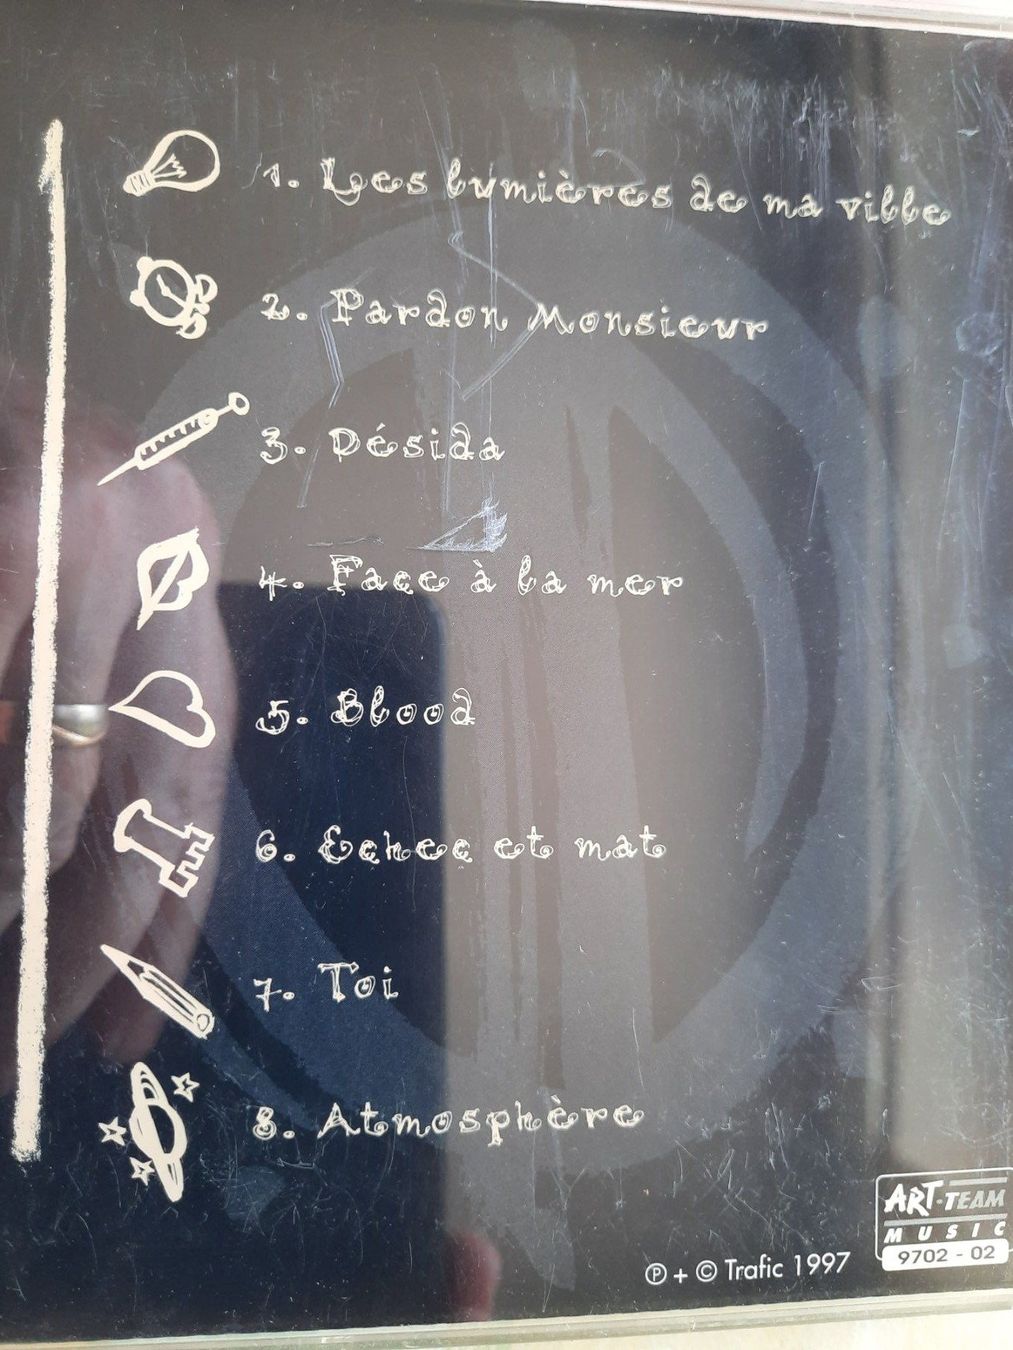 1. Les lumières de ma ville
2. Pardon Monsieur
3. Désida
4. Face à la mer
5. Blood
6. Echec et mat
7. Toi
8. Atmosphère
ART-TEAM
MUSIC
9702 - 02
℗ + © Trafic 1997